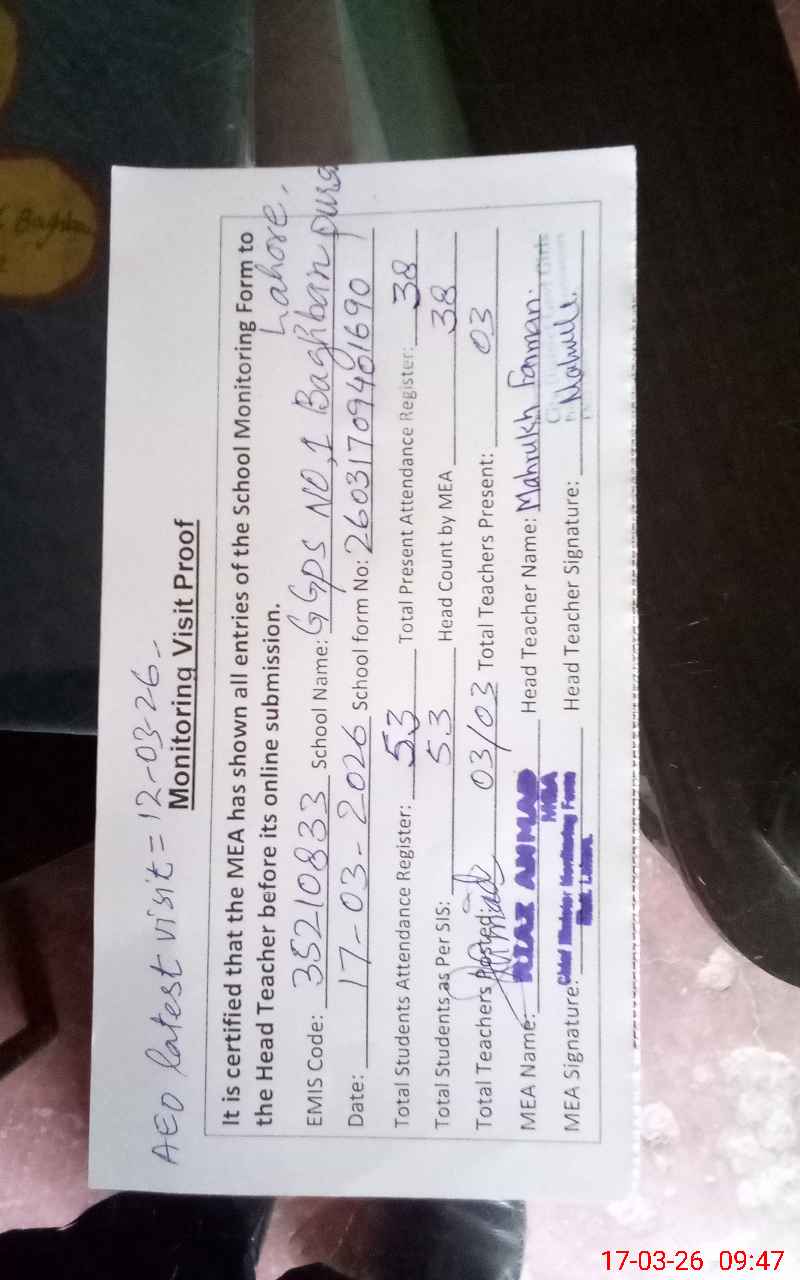 AEO latest visit = 12-03-26.
Monitoring Visit Proof
It is certified that the MEA has shown all entries of the School Monitoring Form to
the Head Teacher before its online submission.
Lahore.
EMIS Code: 35210833 School Name: GGPS NO,1 Baghban pura
Date: 17-03-2026 School form No: 26031709401690
Total Students Attendance Register: 53 Total Present Attendance Register: 38
Total Students as Per SIS: 53 Head Count by MEA 38
Total Teachers Posted: 03/03 Total Teachers Present: 03
MEA Name: RIAZ AHMAD Head Teacher Name: Mahrukh Farman.
MEA
Chief Minister Monitoring Force
MEA Signature: Head Teacher Signature:
Distt. Lahore.
17-03-26 09:47